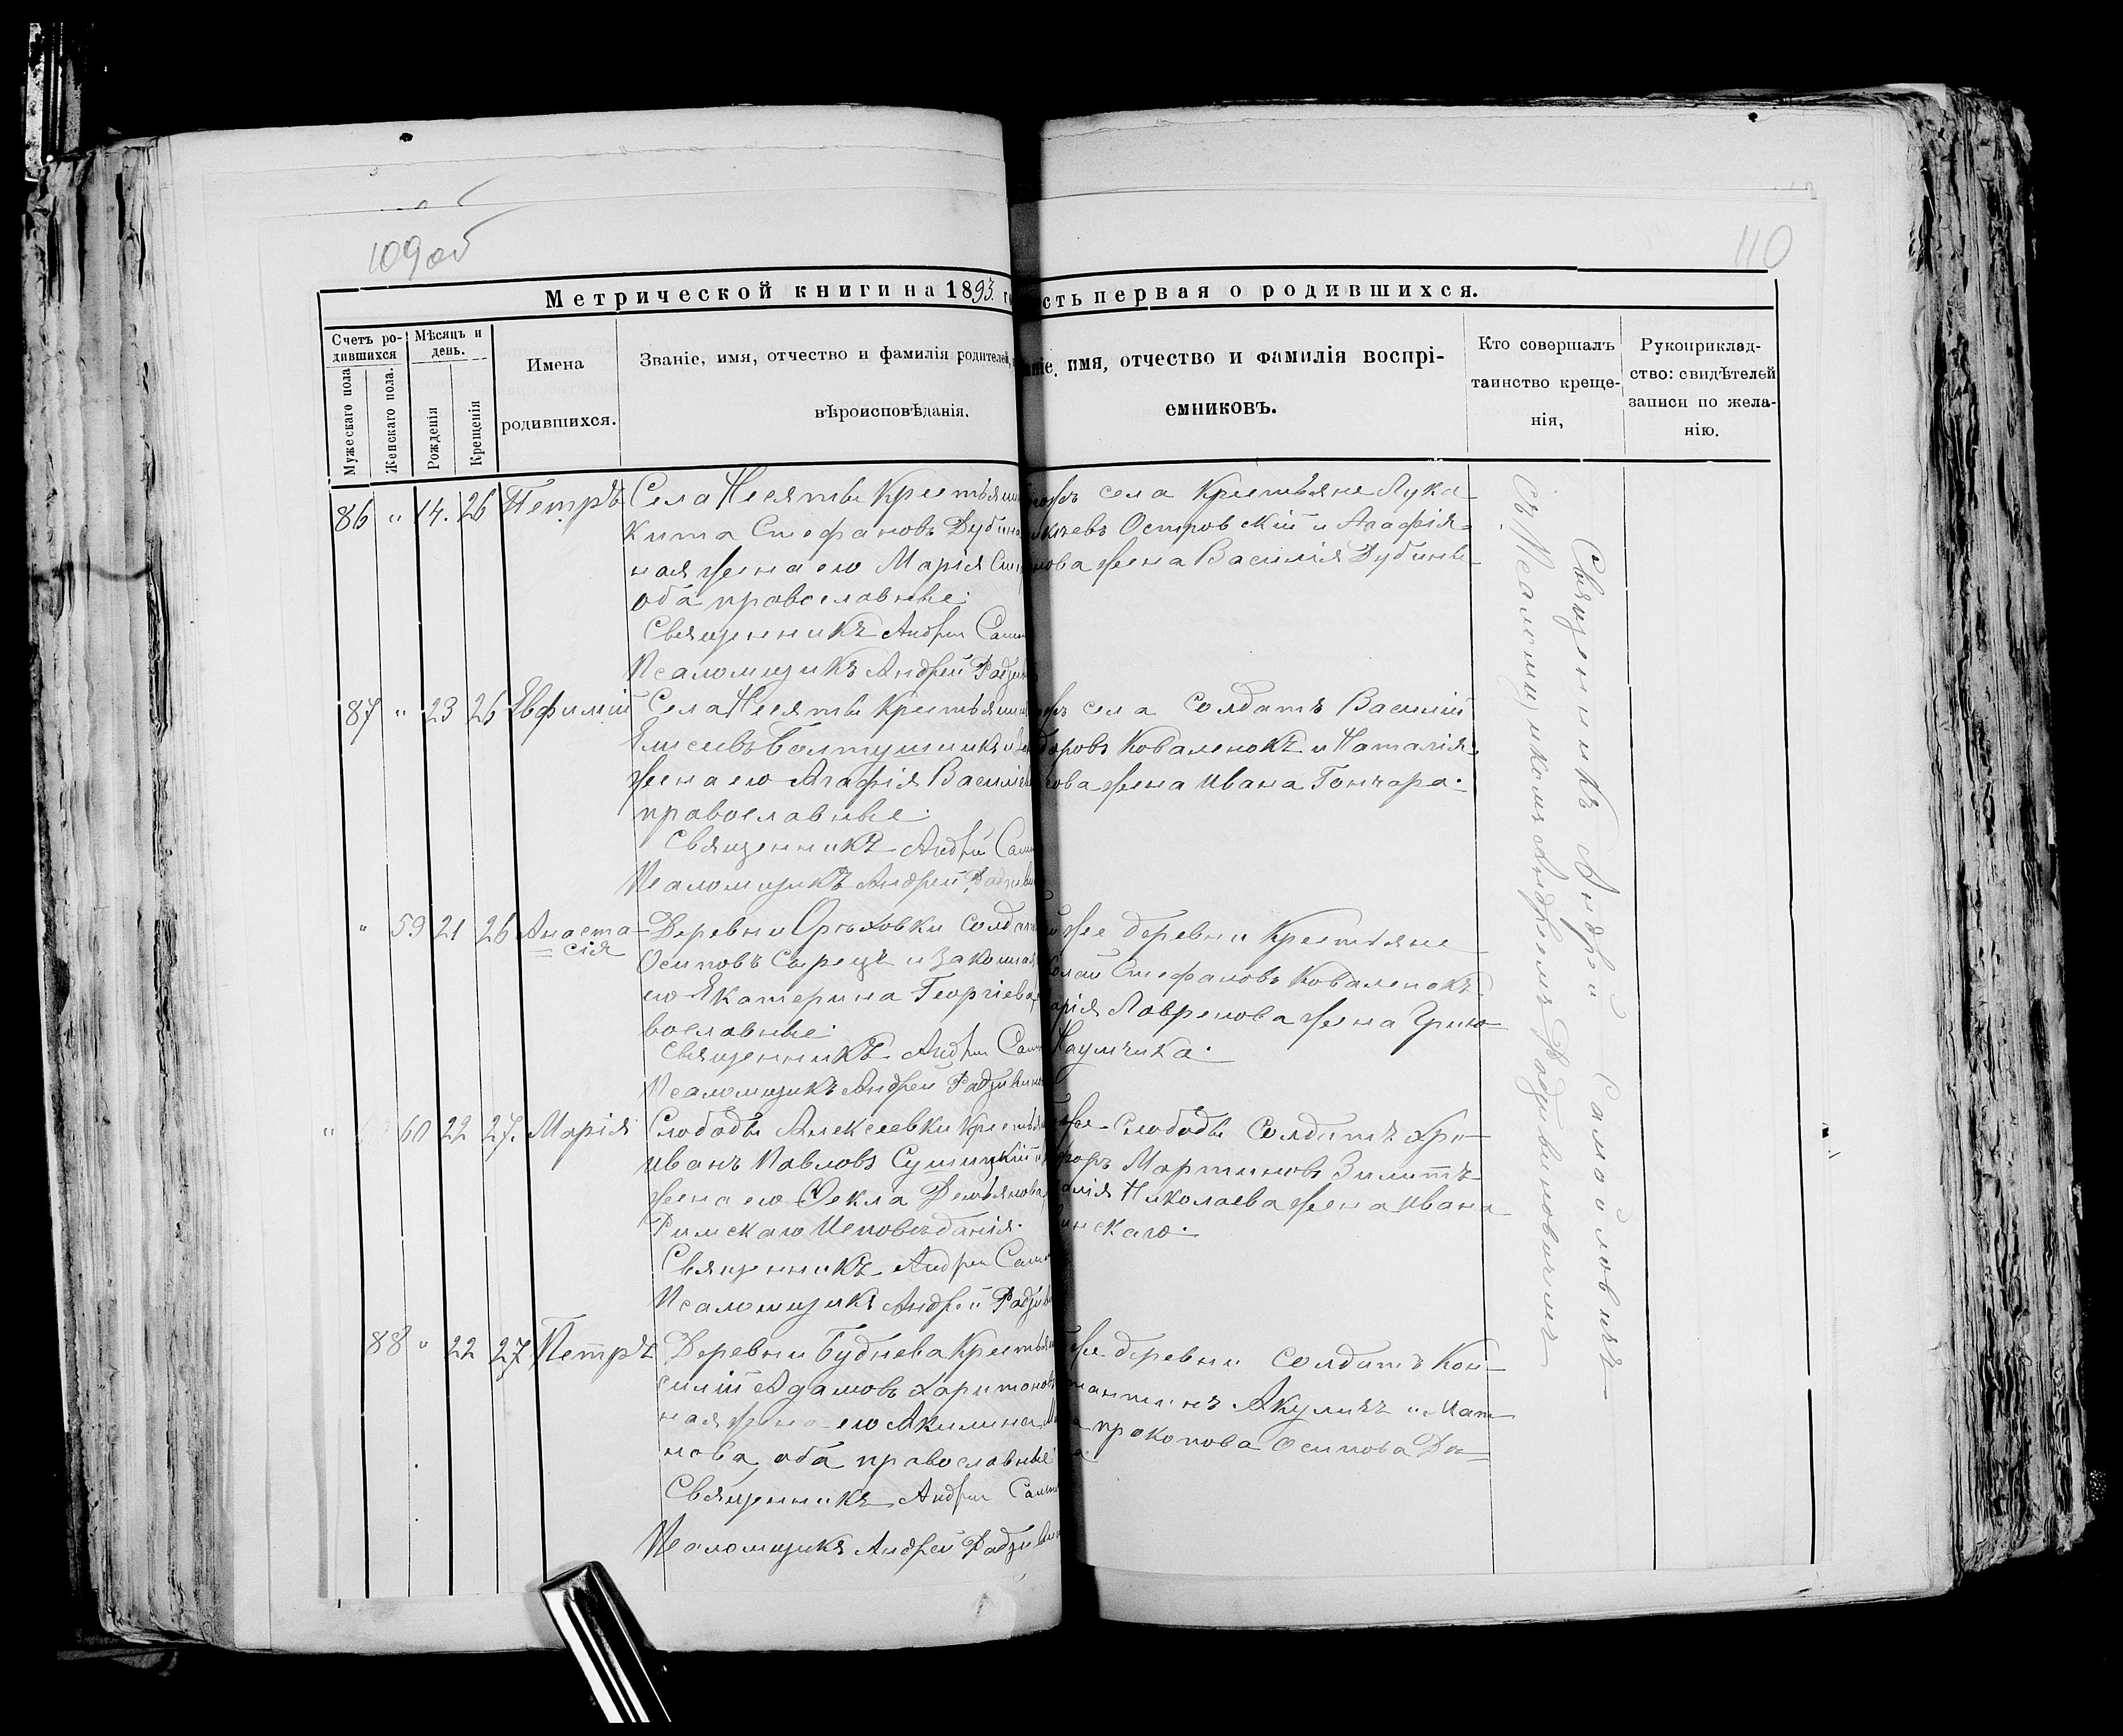 109 об
110
Метрической книги на 1893 г
сть первая о родившихся.
Счетъ ро-
дившихся
Мужескаго пола
Женскаго пола.
Мѣсяцъ и
день.
Рожденія
Крещенія
Имена
родившихся.
Званіе, имя, отчество и фамилія родителей,
вѣроисповѣданія.
ніе, имя, отчество и фамилія воспрі-
емниковъ.
Кто совершалъ
таинство креще-
нія,
Рукоприклад-
ство: свидѣтелей
записи по жела-
нію.
86 " 14. 26 Петръ
Села Несяты Крестьянин
кита Стефановъ Дубин
ная жена его Марія
оба православные.
Священникъ Андрей Сам
Псаломщикъ Андрей Радзив
села Крестьяне Лука
Островскій и Агафія
нова жена Василія Дубины
87 " 23 26 Евфимій
Села Несяты Крестьянин
Елисеевъ Болтушикъ и
жена его Агафія Василіе
православные.
Священникъ Андрей Сам
Псаломщикъ Андрей Радзив
села солдатъ Василій
доровъ Коваленокъ и Наталія
ова жена Ивана Гончара.
" 59 21 26 Анаста-
сія
Деревни Орѣховки солдат
Осиповъ Сырецъ и законная
его Екатерина Георгіева
вославные.
Священникъ Андрей Сам
Псаломщикъ Андрей Радзивин
же деревни Крестьяне
колай Стефановъ Коваленокъ
арія Лавренова жена Григо-
Наумчика.
" 60 22 27. Марія
Слободы Алексеевки Крестьян
Иванъ Павловъ Сушицкій и
жена его Ѳекла Демьянова
Римскаго Исповѣданія.
Священникъ Андрей Сам
Псаломщикъ Андрей Радзив
же слободы солдатъ Хри-
форъ Мартиновъ Зилитъ
алія Николаева жена Ивана
инскаго.
88 " 22 27 Петръ
Деревни Буднева Крестьян
силій Адамовъ Харитонов
ная жена его Акилина
нова, оба православные
Священникъ Андрей Сам
Псаломщикъ Андрей Радзив
же деревни солдатъ Кон-
стантинъ Акуличъ и Мат
а прокопова Осипова До=
Священникъ Андрей Самойловичъ
Съ Псаломщикомъ Андреемъ Радзивиновичемъ